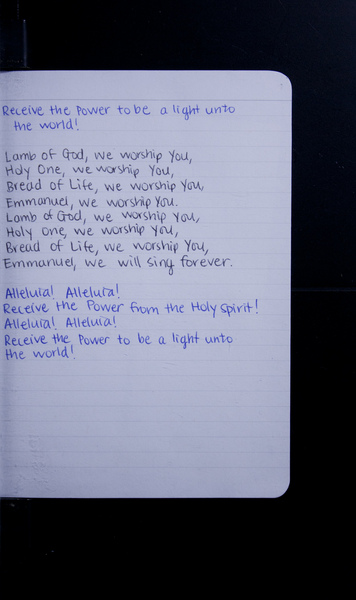 Receive the Power to be a light unto
the world!
Lamb of God, we worship You,
Holy One, we worship You,
Bread of Life, we worship You,
Emmanuel, we worship You.
Lamb of God, we worship You,
Holy One, we worship You,
Bread of Life, we worship You,
Emmanuel, we will sing forever.
Alleluia! Alleluia!
Receive the Power from the Holy Spirit!
Alleluia! Alleluia!
Receive the Power to be a light unto
the world!